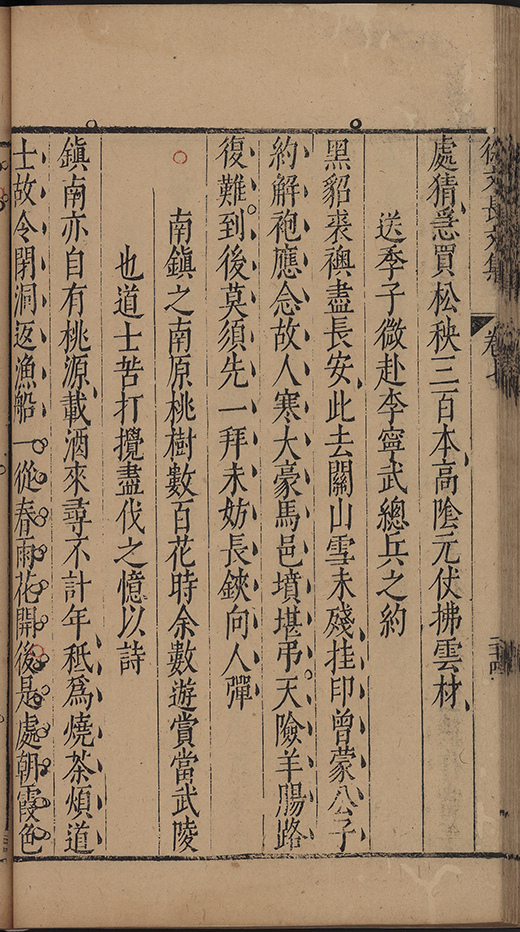 徐文長文集 卷七 三四
處猜憑買松秧三百本高陰元仗拂雲材
送季子微赴李寧武總兵之約
黑貂裘襖盡長安此去關山雪未殘挂印曾蒙公子
約解袍應念故人寒大豪馬邑墳堪弔天險羊腸路
復難到後莫須先一拜未妨長鋏向人彈
南鎮之南原桃樹數百花時余數遊賞當武陵
也道士苦打攪盡伐之憶以詩
鎮南亦自有桃源載酒來尋不計年秪爲燒茶煩道
士故令閉洞返漁船一從春雨花開後是處朝霞色